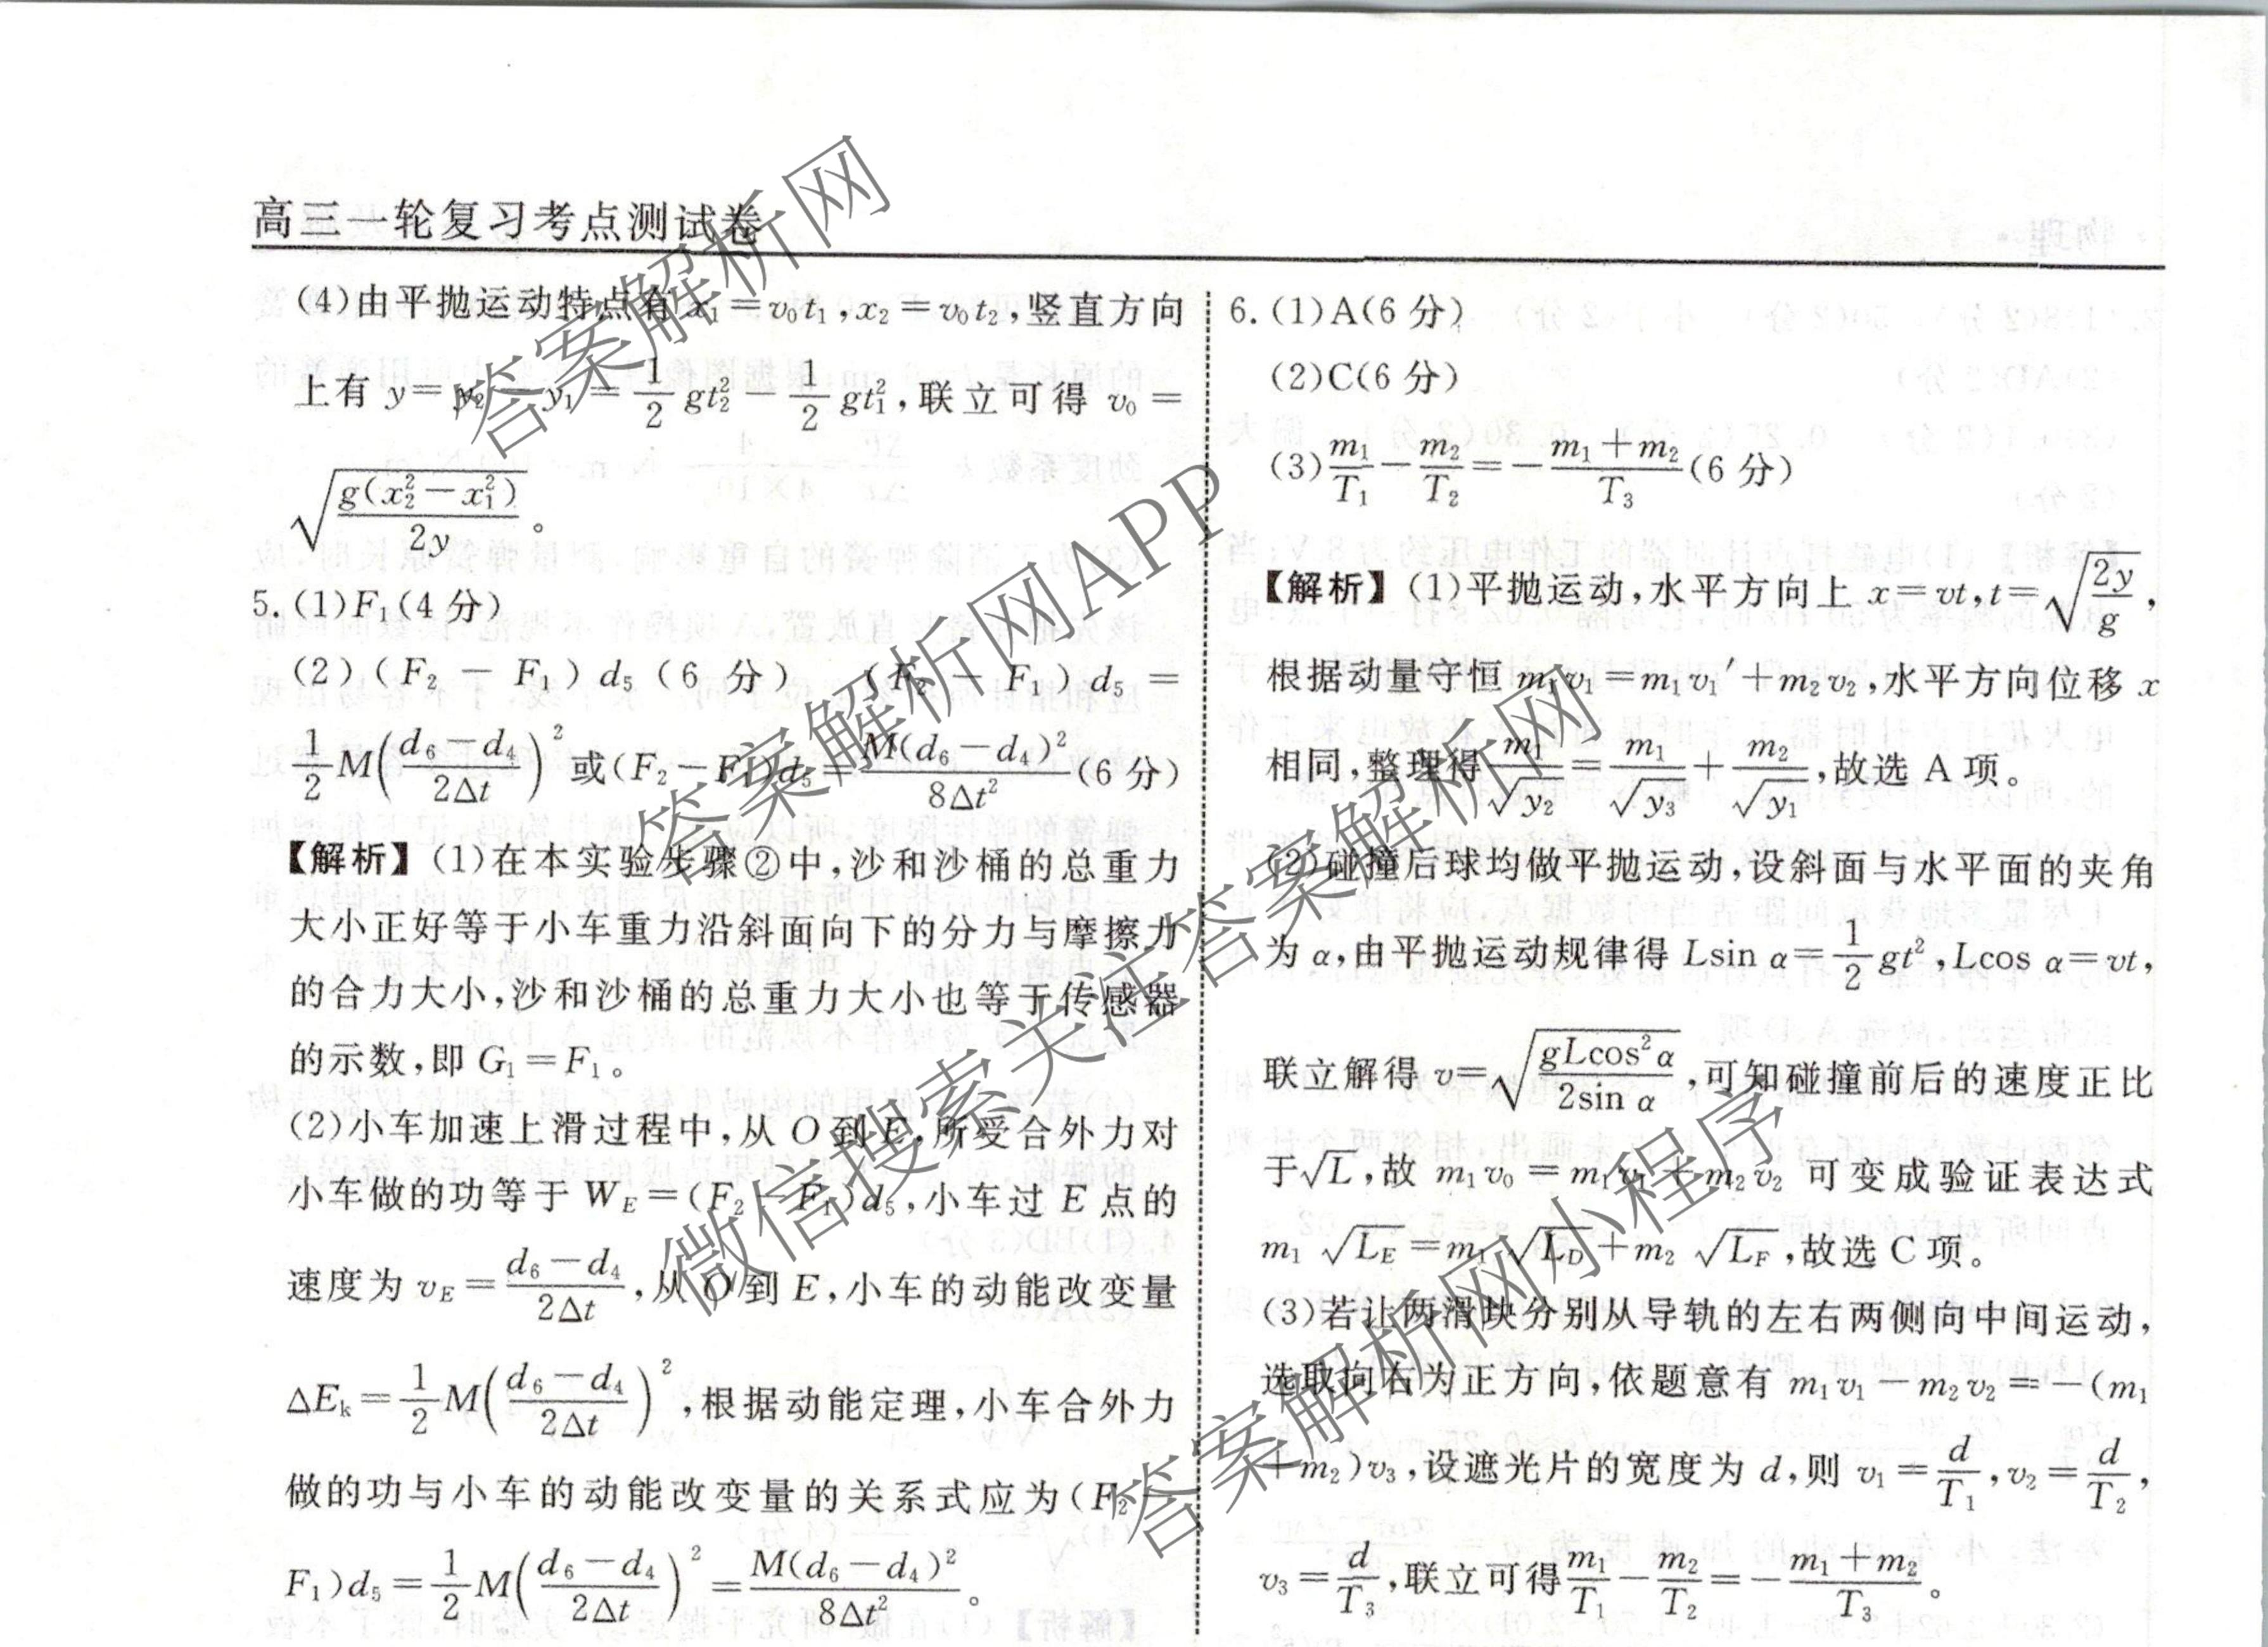 高三一轮复习考点测试卷
(4)由平抛运动特点有 x₁=v₀t₁,x₂=v₀t₂,竖直方向
上有 y=y₂-y₁=1/2 gt₂²-1/2 gt₁²,联立可得 v₀=
√(g(x₂²-x₁²)/2y)。
5.(1)F₁(4 分)
(2)(F₂-F₁)d₅(6 分) (F₂-F₁)d₅=
1/2 M((d₆-d₄)/2Δt)²或(F₂-F₁)d₅=M(d₆-d₄)²/8Δt²(6 分)
【解析】(1)在本实验步骤②中,沙和沙桶的总重力
大小正好等于小车重力沿斜面向下的分力与摩擦力
的合力大小,沙和沙桶的总重力大小也等于传感器
的示数,即 G₁=F₁。
(2)小车加速上滑过程中,从 O 到 E,所受合外力对
小车做的功等于 W_E=(F₂-F₁)d₅,小车过 E 点的
速度为 v_E=(d₆-d₄)/2Δt,从 O 到 E,小车的动能改变量
ΔE_k=1/2 M((d₆-d₄)/2Δt)²,根据动能定理,小车合外力
做的功与小车的动能改变量的关系式应为(F₂-
F₁)d₅=1/2 M((d₆-d₄)/2Δt)²=M(d₆-d₄)²/8Δt²。
6.(1)A(6 分)
(2)C(6 分)
(3)m₁/T₁-m₂/T₂=-(m₁+m₂)/T₃(6 分)
【解析】(1)平抛运动,水平方向上 x=vt,t=√(2y/g),
根据动量守恒 m₁v₁=m₁v₁′+m₂v₂,水平方向位移 x
相同,整理得 m₁/√y₂=m₁/√y₃+m₂/√y₁,故选 A 项。
(2)碰撞后球均做平抛运动,设斜面与水平面的夹角
为 α,由平抛运动规律得 Lsin α=1/2 gt²,Lcos α=vt,
联立解得 v=√(gLcos²α/2sin α),可知碰撞前后的速度正比
于√L,故 m₁v₀=m₁v₁+m₂v₂ 可变成验证表达式
m₁√L_E=m₁√L_D+m₂√L_F,故选 C 项。
(3)若让两滑块分别从导轨的左右两侧向中间运动,
选取向右为正方向,依题意有 m₁v₁-m₂v₂=-(m₁
+m₂)v₃,设遮光片的宽度为 d,则 v₁=d/T₁,v₂=d/T₂,
v₃=d/T₃,联立可得 m₁/T₁-m₂/T₂=-(m₁+m₂)/T₃。
答案解析网
答案解析网APP
微信搜索关注答案解析网
答案解析网小程序